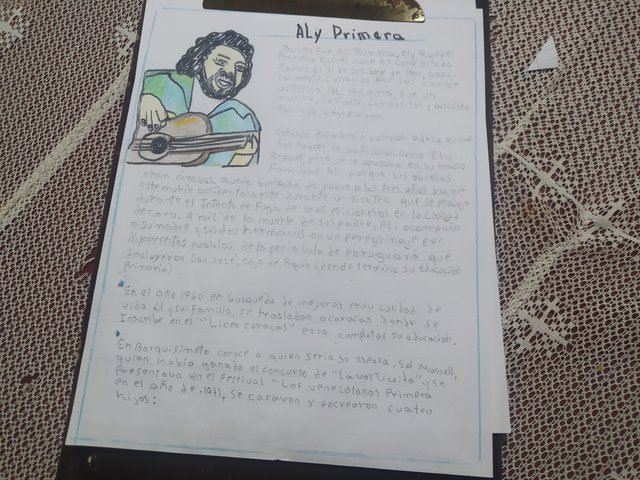 ALy Primera
Quien fue Ali Primera, Ely Rafael
Primera Rossel nace en Coro Estado
Falcón el 31 de octubre de 1941, popu
larmente conocido por su nombre
artístico ALi Primera, fue un
músico, cantante, compositor y activista
Político venezolano.
Antonio Primera y Carmen Adela Rossel
Sus Padres, lo bautizaron como Ely
Rafael, pero se le apodaba en su
Familiar Ali porque sus abuelos
eran árabes. quedó huérfano de padre a los tres años ya que
este murio accidentalmente durante un tiroteo que se produjo
durante el Intento de Fuga de unos Pricioneros en la Ciudad
de coro. A raiz de la muerte de sus padre, ALi acompaño
a su madre y sus dos hermanos en un peregrinaje por
diferentes pueblos de la peninsula de paraguaná que
Incluyeron San José, Caja de Agua (donde termino su educación
Primaria).
En el año 1960 en busqueda de mejoras en su calidad de
vida él y su familia, se trasladan a caracas donde se
Inscribe en el "Liceo caracas" para completar su educación.
En Barquisimeto conoce a quien seria su esposa. Sol Mussett,
quien había ganado el concurso de "La voz Liceista" y se
Presentaba en el Festival "Los venezolanos Primero
en el año de .1977, se casaron y procrearon cuatro
hijos: